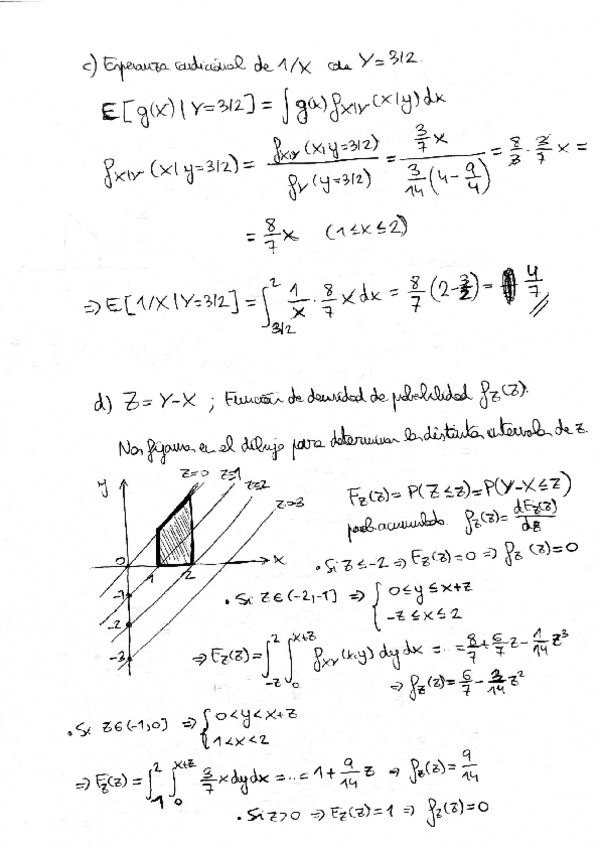 c) Esperanza condicional de 1/X con Y=3/2.
E[g(X)|Y=3/2] = ∫ g(x) f_{X|Y}(x|y) dx
f_{X|Y}(x|y=3/2) = f_{X|Y}(x|y=3/2) / f_Y(y=3/2) = (3/7 x) / (3/14 (4 - 9/4)) = 8/3 · 3/7 x =
= 8/7 x (1≤x≤2)
⇒ E[1/X|Y=3/2] = ∫_{3/2}^{2} 1/x · 8/7 x dx = 8/7 (2 - 3/2) = 4/7
d) Z = Y-X ; Función de densidad de probabilidad f_Z(z).
Nos fijamos en el dibujo para determinar los distintos intervalos de z.
y z=0 z=1 z=2
z=3
0 1 2 x
-1
-2
-3
F_Z(z) = P(Z≤z) = P(Y-X≤z)
prob. acumulada f_Z(z) = dF_Z(z)/dz
• Si z≤-2 ⇒ F_Z(z)=0 ⇒ f_Z(z)=0
• Si z∈(-2,-1] ⇒ { 0≤y≤x+z
-z≤x≤2
⇒ F_Z(z) = ∫_{-z}^{2} ∫_{0}^{x+z} f_{XY}(x,y) dy dx = ... = 8/7 + 6/7 z - 1/14 z³
⇒ f_Z(z) = 6/7 - 3/14 z²
• Si z∈(-1,0] ⇒ { 0<y<x+z
1<x<2
⇒ F_Z(z) = ∫_{1}^{2} ∫_{0}^{x+z} 3/7 x dy dx = ... = 1 + 9/14 z ⇒ f_Z(z) = 9/14
• Si z>0 ⇒ F_Z(z)=1 ⇒ f_Z(z)=0